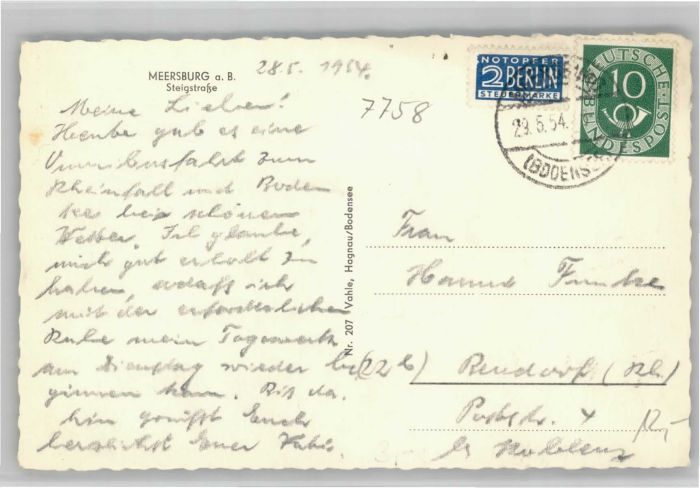 MEERSBURG a. B.
Steigstraße
28.5.1954.
Meine Lieben!
Heute gab es eine
Omnibusfahrt zum
Rheinfall und Boden
see bei schönem
Wetter. Ich glaube,
mich gut erholt zu
haben, sodaß ich
mit der erforderlichen
Ruhe mein Tagewerk
am Dienstag wieder be
ginnen kann. Bis da
hin grüßt Euch
herzlichst Euer
7758
Nr. 207 Vahle, Hagnau/Bodensee
NOTOPFER
2 BERLIN
STEUERMARKE
DEUTSCHE
BUNDESPOST
10
29.5.54
(BODENS
Frau
Hanne Funke
(22b) Bendorf (Rh.)
Poststr. 4
bei Koblenz